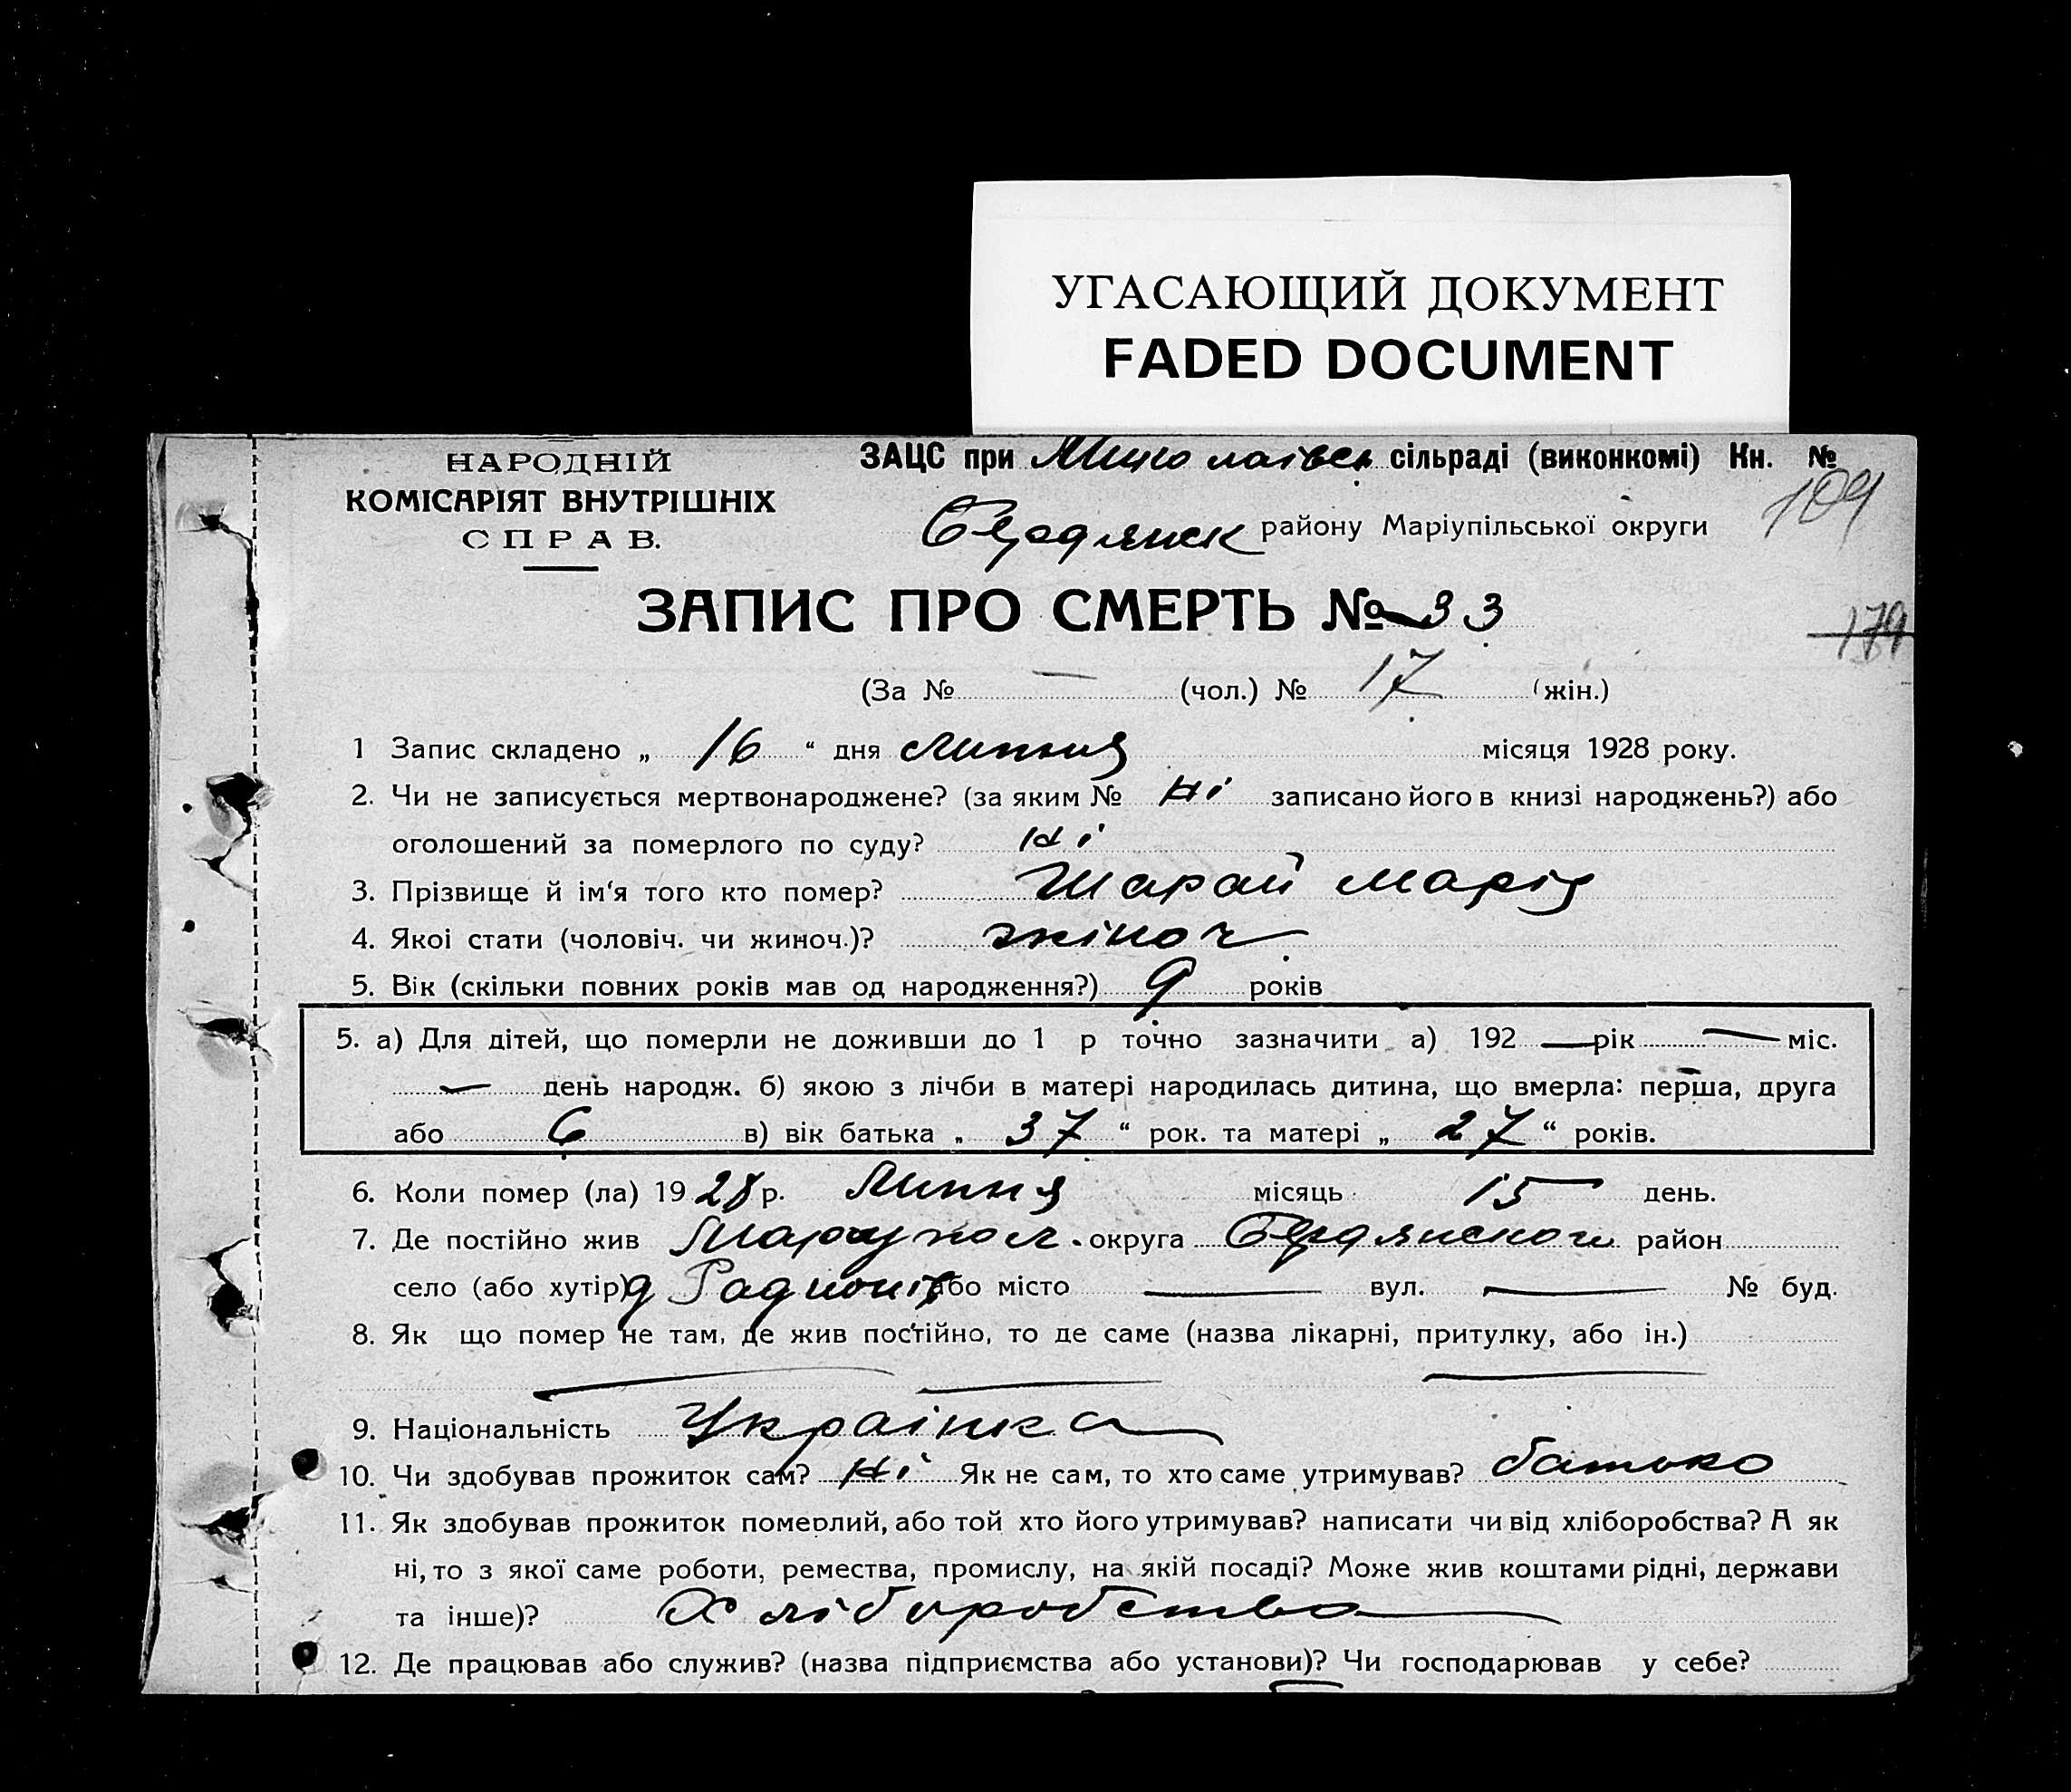 УГАСАЮЩИЙ ДОКУМЕНТ
FADED DOCUMENT
НАРОДНІЙ
КОМІСАРІЯТ ВНУТРІШНІХ
СПРАВ.
ЗАЦС при сільраді (виконкомі) Кн. №
109
Бердянск району Маріупільської округи
ЗАПИС ПРО СМЕРТЬ № 33
179
(За № — (чол.) № 17 (жін.)
1 Запис складено „ 16 “ дня липня місяця 1928 року.
2. Чи не записується мертвонароджене? (за яким № ні записано його в книзі народжень?) або
оголошений за померлого по суду? ні
3. Прізвище й ім‘я того кто помер? Шарай Марія
4. Якоі стати (чоловіч. чи жиноч.)? жіноч
5. Вік (скільки повних років мав од народження?) 9 років
5. а) Для дітей, що померли не доживши до 1 р точно зазначити а) 192 — рік — міс.
— день народж. б) якою з лічби в матері народилась дитина, що вмерла: перша, друга
або 6 в) вік батька „ 37 “ рок. та матері „ 27 “ років.
6. Коли помер (ла) 1928 р. Липня місяць 15 день.
7. Де постійно жив округа Бердянского район
село (або хутір) або місто — вул. — № буд.
8. Як що помер не там, де жив постійно, то де саме (назва лікарні, притулку, або ін.)
— — —
9. Національність Украінка
10. Чи здобував прожиток сам? ні Як не сам, то хто саме утримував? батько
11. Як здобував прожиток померлий, або той хто його утримував? написати чи від хліборобства? А як
ні, то з якої саме роботи, ремества, промислу, на якій посаді? Може жив коштами рідні, держави
та інше)? Хліборобство
12. Де працював або служив? (назва підприємства або установи)? Чи господарював у себе?